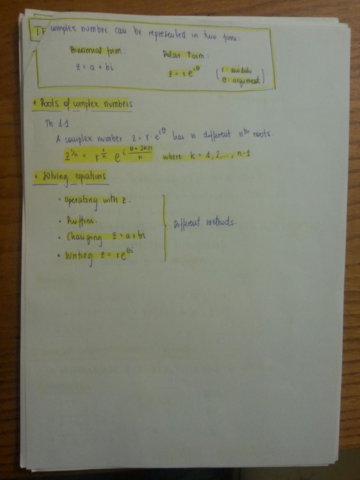 complex number can be represented in two forms:
Binomial form: Polar Form:
z = a + bi z = r e^{iθ} ( r - module
θ - argument )
• Roots of complex numbers
Th 3.1
A complex number z = r · e^{iθ} has n different nth roots:
z^{1/n} = r^{1/n} e^{i (θ + 2kπ)/n} where k = 1, 2, ..., n-1
• Solving equations
• Operating with z.
• Ruffini.
• Changing z = a + bi
• Writing z = r e^{θi}
Different methods.